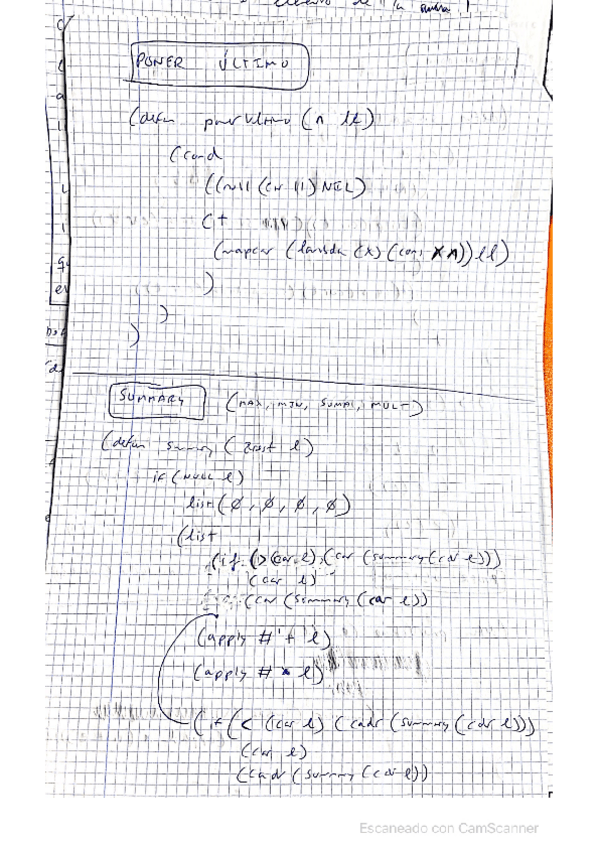 elemento de la
PONER ÚLTIMO
(defun ponerUltimo (n ll)
(cond
((null (car ll) NIL)
(t
(mapcar (lambda (x) (cons x n)) ll)
)
)
)
SUMMARY (MAX, MIN, SUMA, MULT)
(defun summary (&rest l)
if (NULL l)
list (0, 0, 0, 0)
(list
(if (> (car l) (car (summary (cdr l)))
(car l)
(car (summary (cdr l))
(apply #'+ l)
(apply # * l)
(if (< (car l) (cadr (summary (cdr l)))
(car l)
(cadr (summary (cdr l))
Escaneado con CamScanner